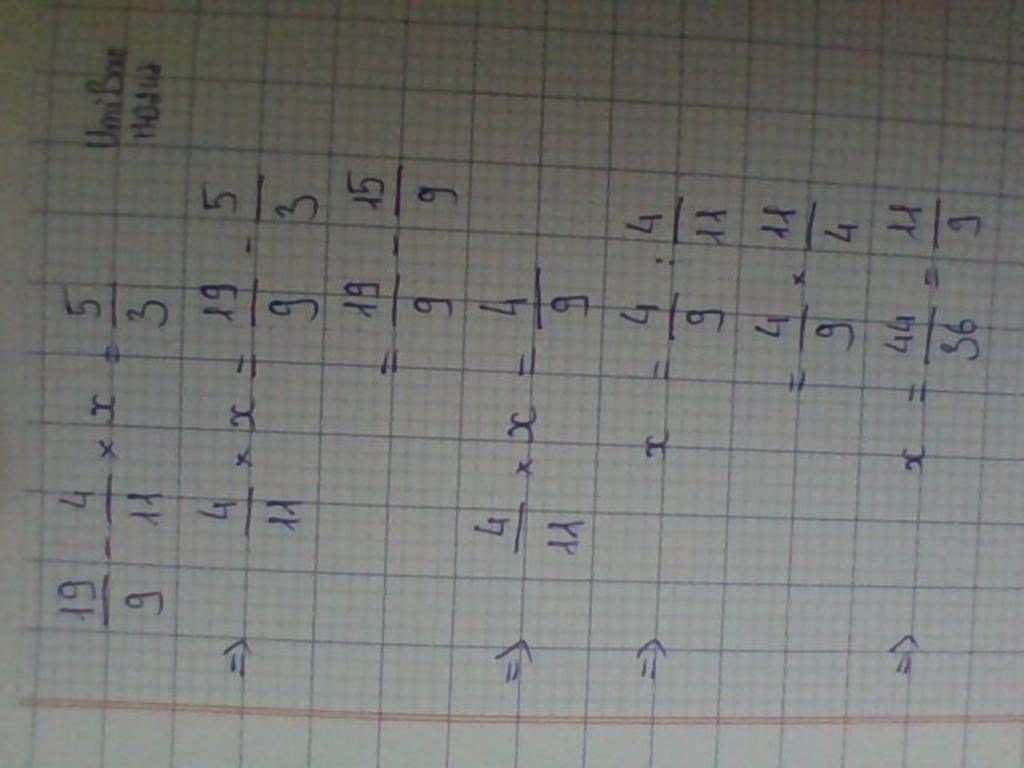 19/9 - 4/11 × x = 5/3
=> 4/11 × x = 19/9 - 5/3
= 19/9 - 15/9
=> 4/11 × x = 4/9
=> x = 4/9 : 4/11
= 4/9 × 11/4
=> x = 44/36 = 11/9